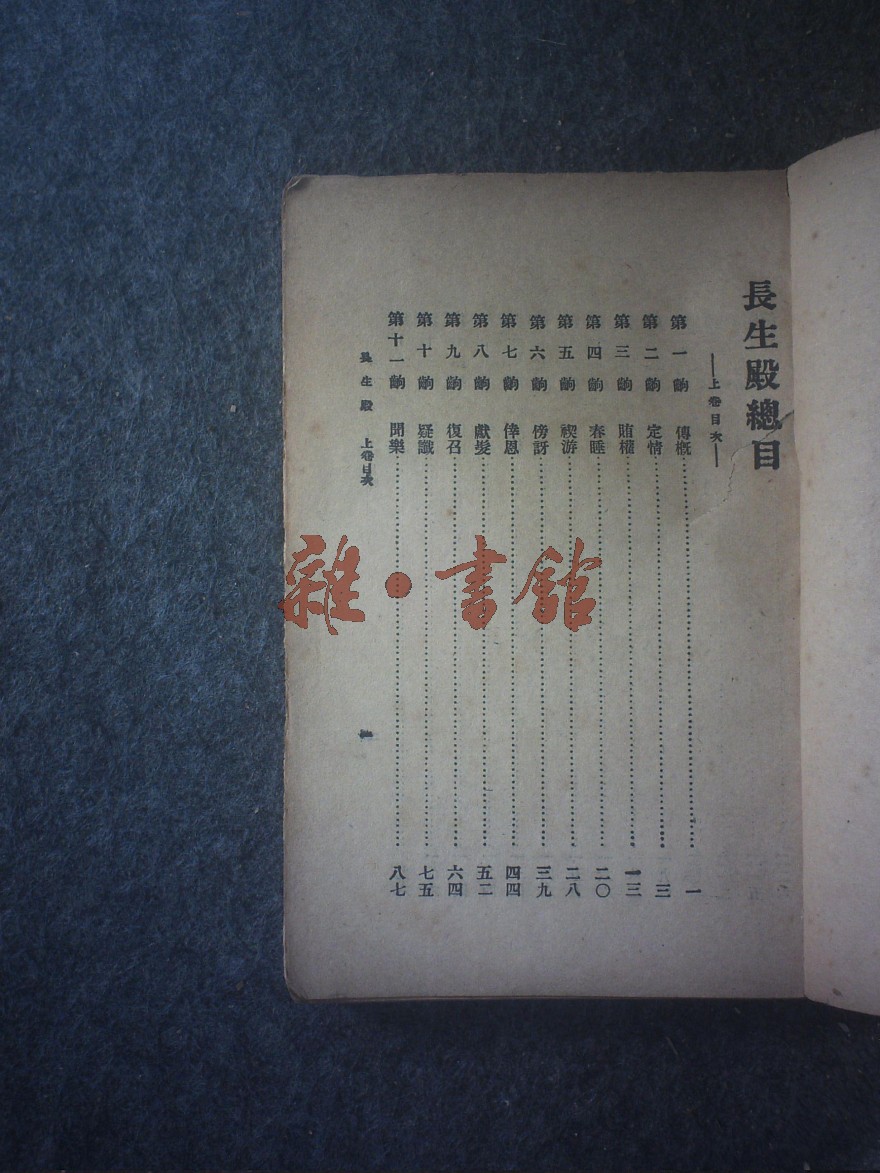 長生殿總目
——上卷目次——
第一齣 傳槪 一
第二齣 定情 三
第三齣 賄權 一三
第四齣 春睡 二〇
第五齣 禊游 二八
第六齣 傍訝 三九
第七齣 倖恩 四四
第八齣 獻髮 五二
第九齣 復召 六四
第十齣 疑讖 七五
第十一齣 聞樂 八七
長生殿 上卷目次
雜·書館